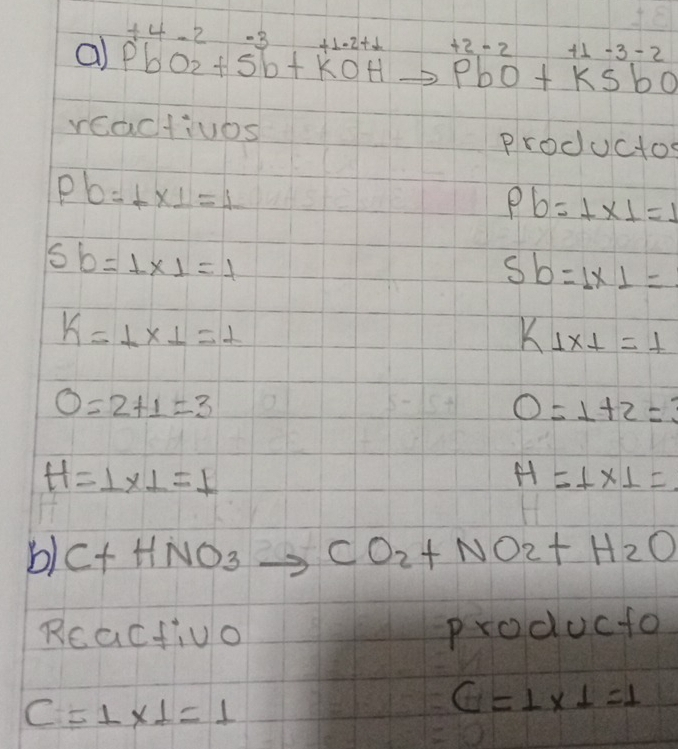 +4 -2 -3 +1-2+1 +2 -2 +1 -3 -2
a) PbO2 + Sb + KOH → PbO + KSbO
reactivos productos
Pb = 1 x 1 = 1 Pb = 1 x 1 = 1
Sb = 1 x 1 = 1 Sb = 1 x 1 =
K = 1 x 1 = 1 K 1 x 1 = 1
O = 2+1 = 3 O = 1+2 = 3
H = 1 x 1 = 1 H = 1 x 1 =
b) C + HNO3 → CO2 + NO2 + H2O
Reactivo producto
C = 1 x 1 = 1 C = 1 x 1 = 1